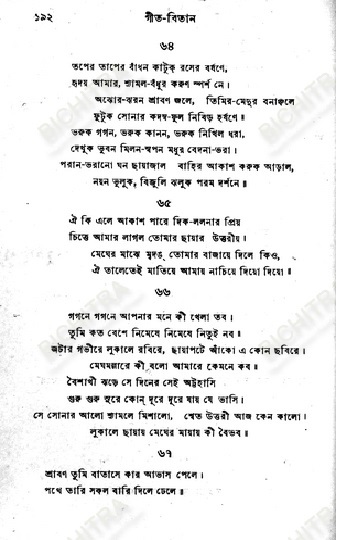 ১৯২
গীত-বিতান
৬৪
তপের তাপের বাঁধন কাটুক রসের বর্ষণে,
হৃদয় আমার, শ্যামল-বঁধুর করুণ স্পর্শ নে।
অঝোর-ঝরন শ্রাবণ জলে, তিমির-মেদুর বনাঞ্চলে
ফুটুক সোনার কদম্ব-ফুল নিবিড় হর্ষণে॥
ভরুক গগন, ভরুক কানন, ভরুক নিখিল ধরা,
দেখুক ভুবন মিলন-স্বপন মধুর বেদনা-ভরা।
পরান-ভরানো ঘন ছায়াজাল বাহির আকাশ করুক আড়াল,
নয়ন ভুলুক, বিজুলি ঝলুক পরম দর্শনে॥
৬৫
ঐ কি এলে আকাশ পারে দিক-ললনার প্রিয়
চিত্তে আমার লাগল তোমার ছায়ার উত্তরীয়॥
মেঘের মাঝে মৃদঙ্ তোমার বাজায়ে দিলে কিও,
ঐ তালেতেই মাতিয়ে আমায় নাচিয়ে দিয়ো দিয়ো॥
৬৬
গগনে গগনে আপনার মনে কী খেলা তব।
তুমি কত বেশে নিমেষে নিমেষে নিতুই নব॥
জটার গভীরে লুকালে রবিরে, ছায়াপটে আঁকো এ কোন ছবিরে।
মেঘমল্লারে কী বলো আমারে কেমনে কব॥
বৈশাখী ঝড়ে সে দিনের সেই অট্টহাসি
গুরু গুরু সুরে কোন্ দূরে দূরে যায় যে ভাসি।
সে সোনার আলো শ্যামলে মিশালো, শ্বেত উত্তরী আজ কেন কালো।
লুকালে ছায়ায় মেঘের মায়ায় কী বৈভব॥
৬৭
শ্রাবণ তুমি বাতাসে কার আভাস পেলে।
পথে তারি সকল বারি দিলে ঢেলে॥
BICHITRA